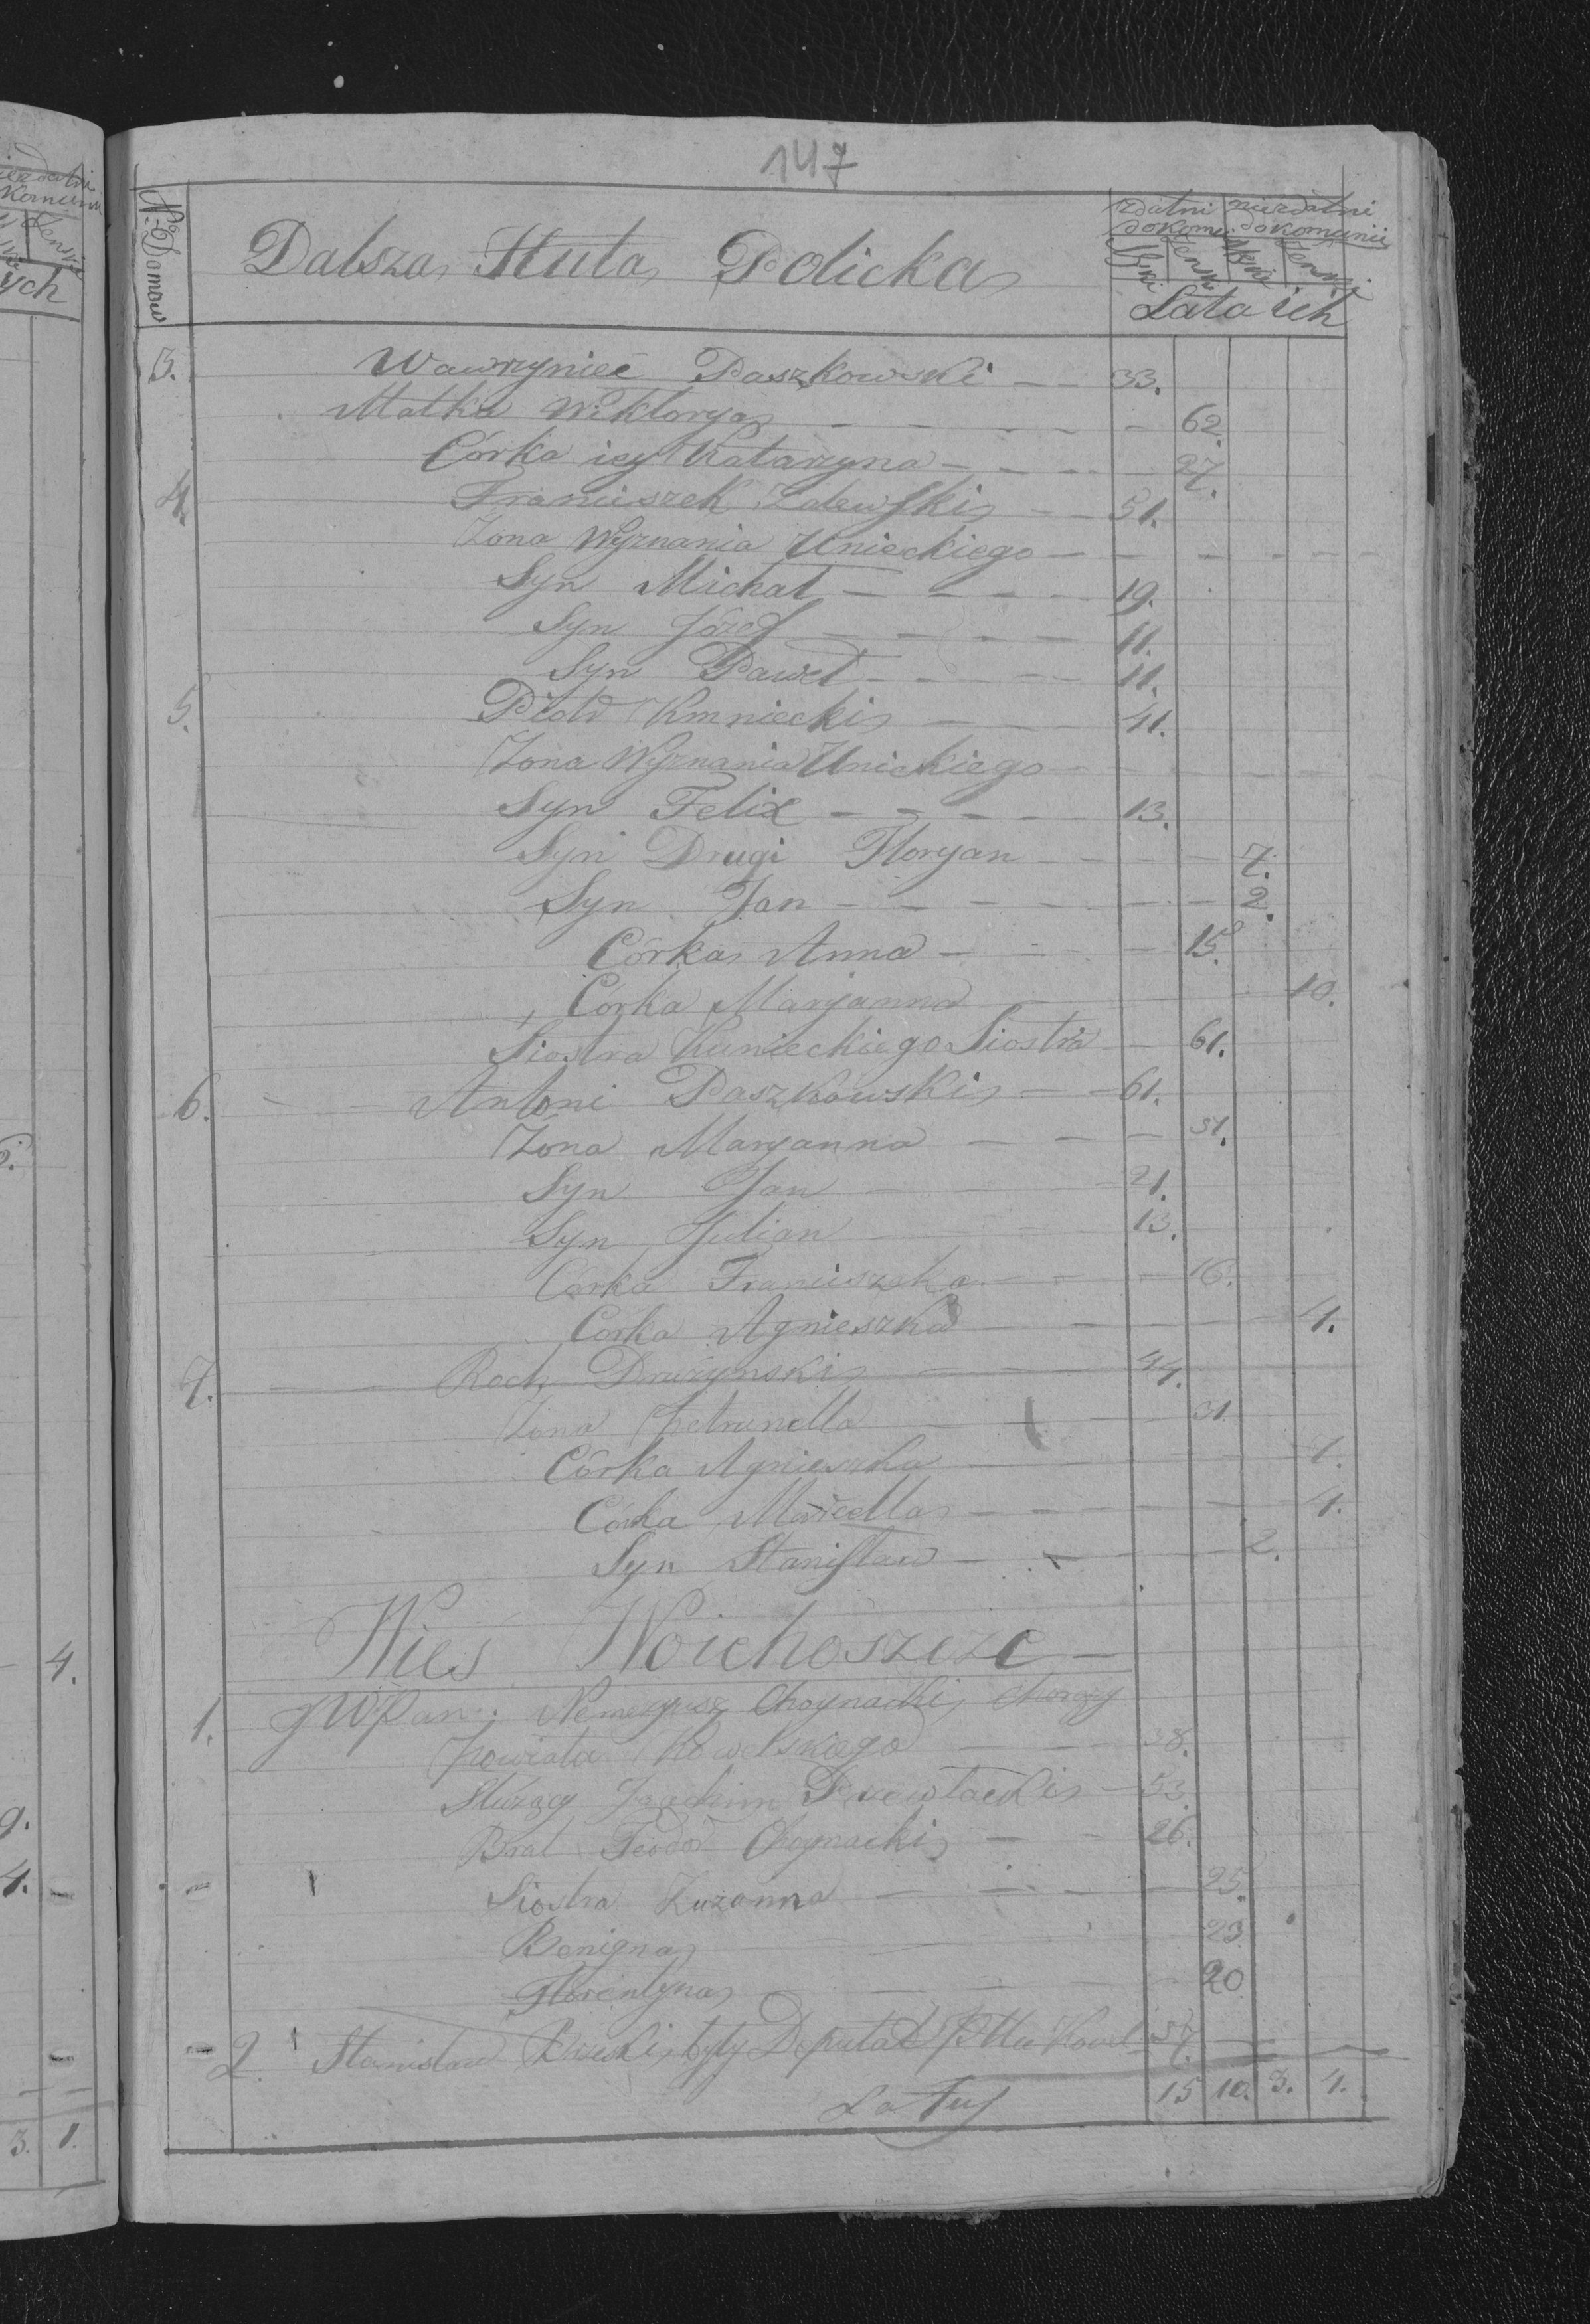 147
No Domow
Dalsza Huta Policka
zdatni niezdatni
do komu. do komunii
Męski Żeński Męski Żeński
Lata ich
3. Wawrzyniec Paszkowski — — 33.
Matka Wiktorya — — — — — 62.
Córka iey Katarzyna — — — — 27.
4. Franciszek Zalewski — — 51.
Żona Wyznania Unieckiego — — — — — —
Syn Michał — — — — 19.
Syn Józef — — — — 11.
Syn Paweł — — — — 11.
5. Piotr Kmniecki — — 41.
Żona Wyznania Unickiego — — — — — —
Syn Felix — — — — 13.
Syn Drugi Floryan — — — — 7.
Syn Jan — — — — — — 2.
Córka Anna — — — — 15.
Córka Maryanna — 10.
Siostra Kunieckiego Siostra — 61.
6. Antoni Paszkowski — — 61.
Żona Maryanna — — — 51.
Syn Jan — — 21.
Syn Julian — — 13.
Córka Franciszka — — — 16.
Córka Agnieszka — — — — — 4.
7. Roch Drużynski — — 44.
Żona Petrunella — — — 31.
Córka Agnieszka — — 7.
Córka Marcella — — — — — 4.
Syn Stanisław — — — — 2.
Wieś Woichoszcze —
1. JWPan Nemezyusz Choynacki Chorąży
Powiata Kowelskiego — — 38.
Służący Joachim — 53.
Brat Teodor Choynacki — — 26.
Siostra Zuzanna — — — — 25.
Benigna — 23
Florentyna — — — 20
2. Stanislaw były Deputat Pttu Kowel 57.
Latus 15 10. 3. 4.